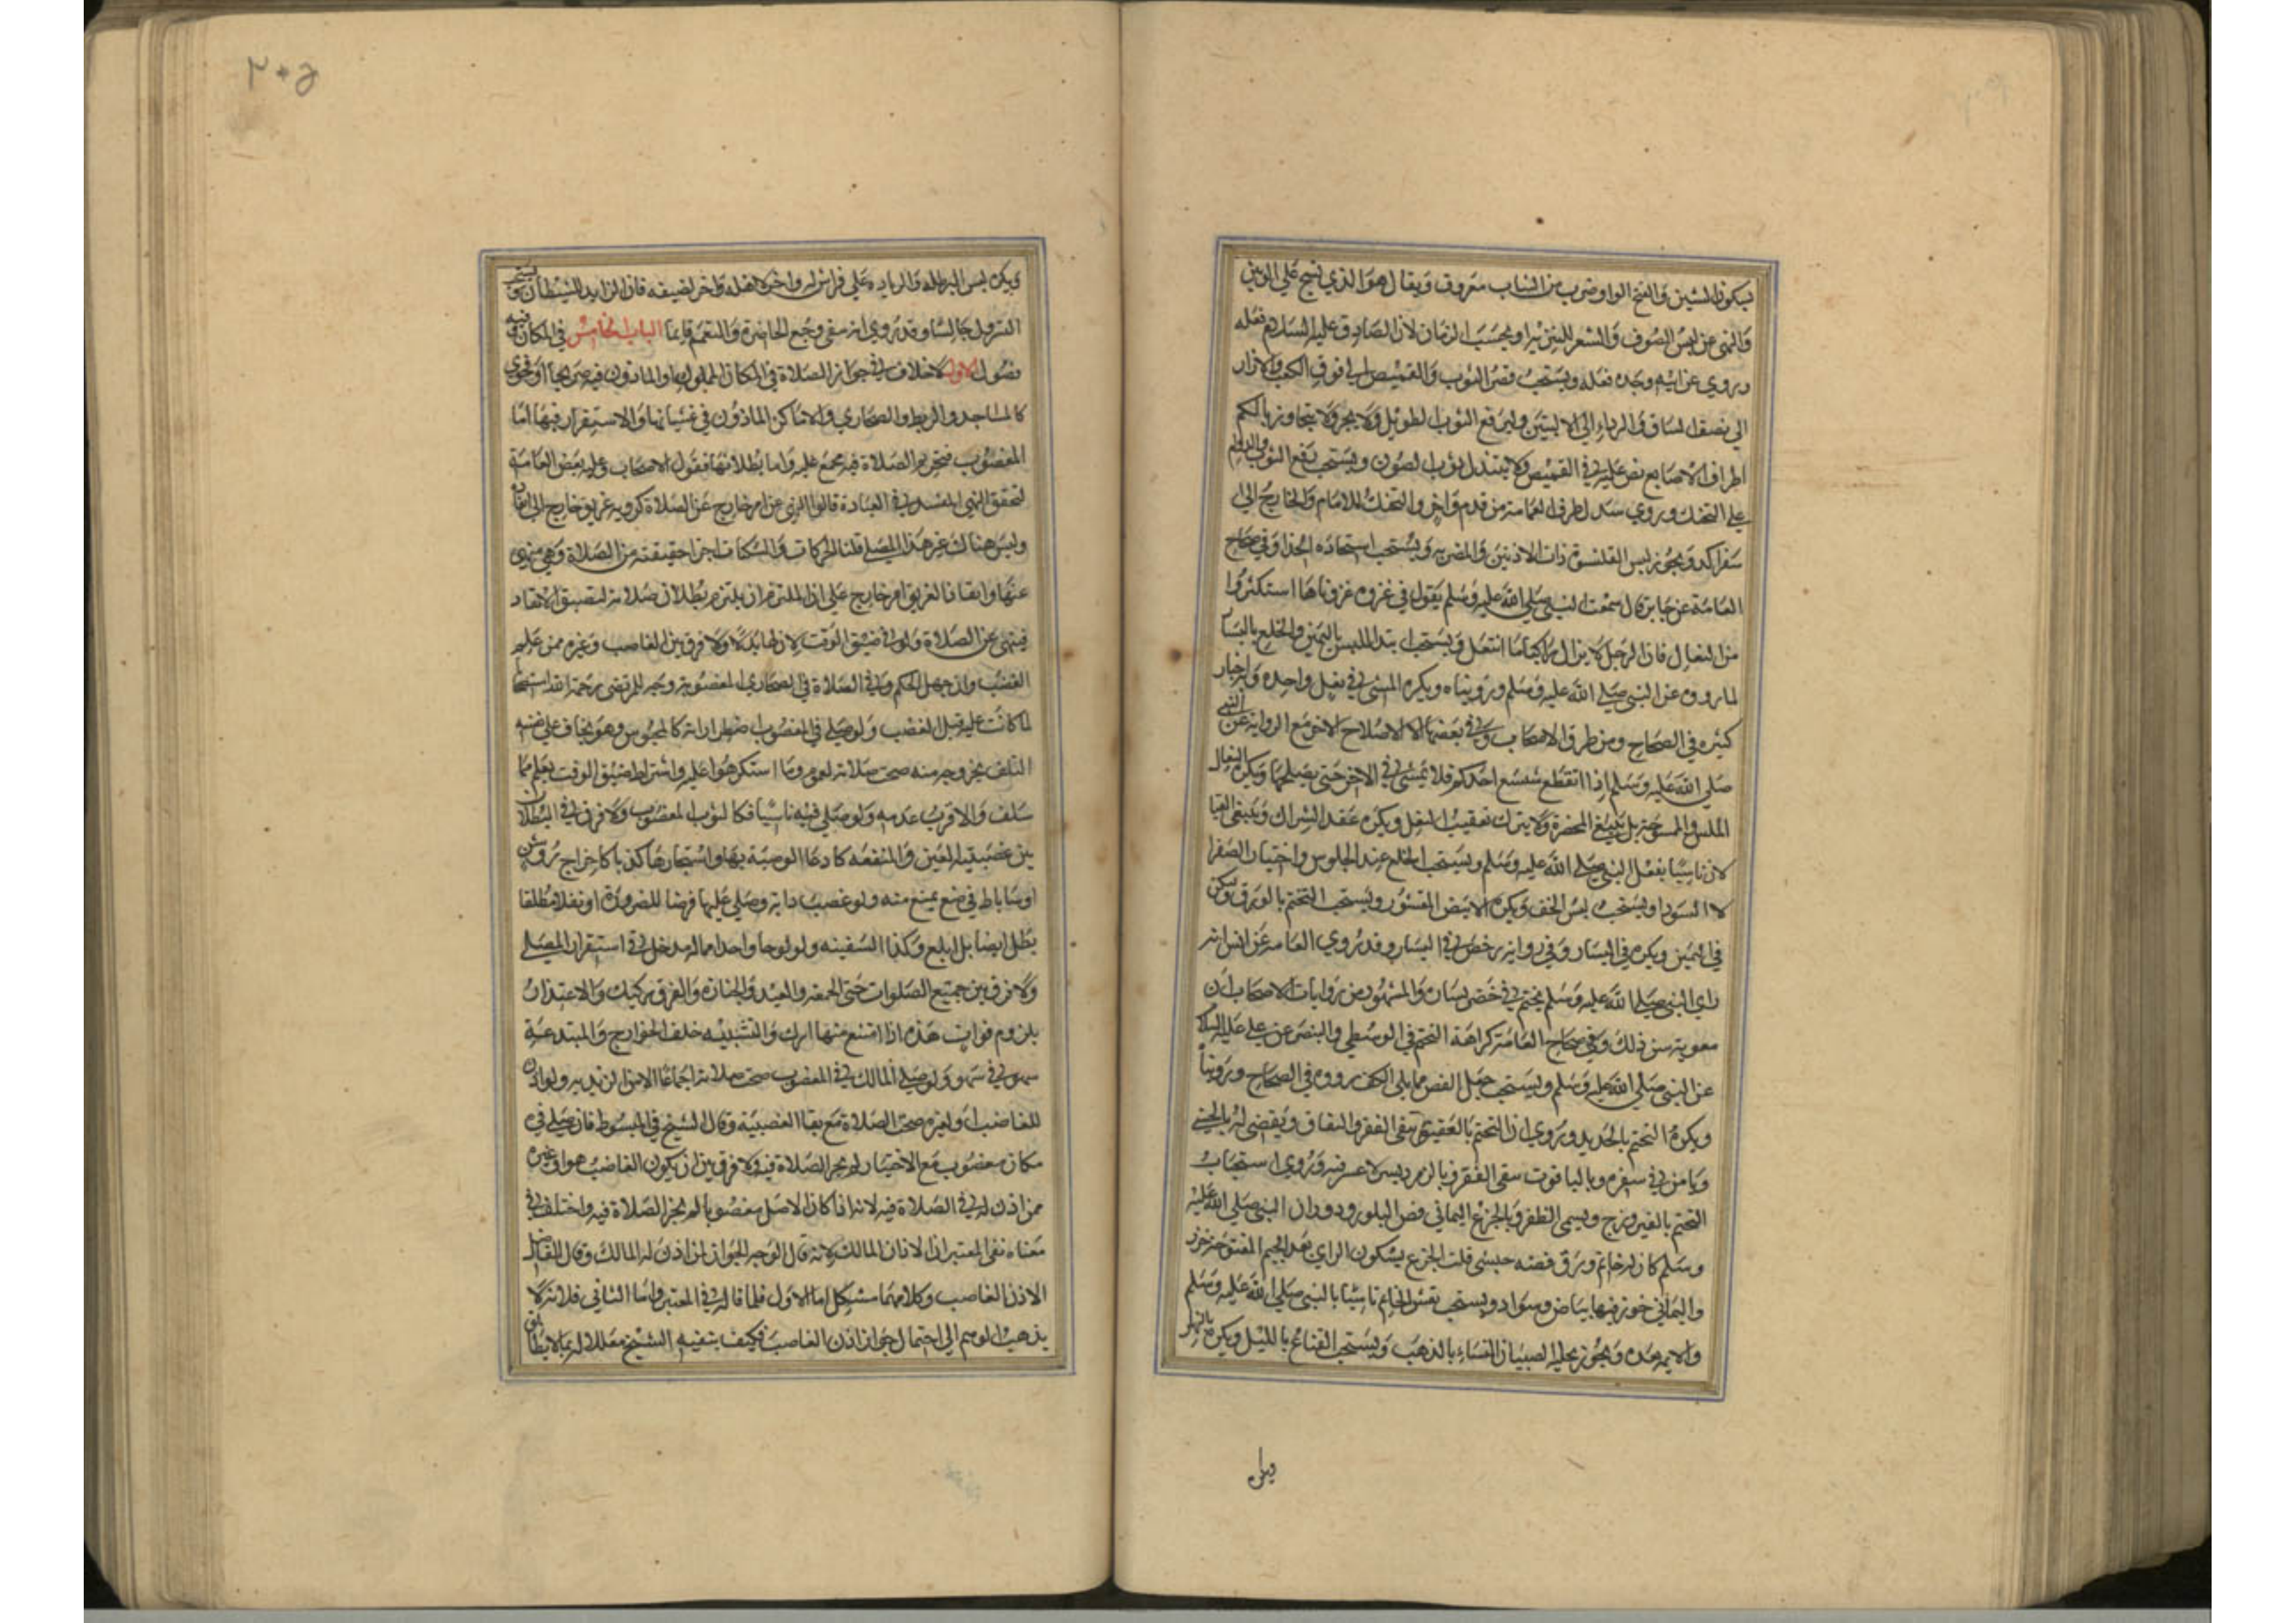 بسكون الشين والفتح الواو ضرب من الثياب معروف ويقال هو الذي نسج علي لونين
والنهي عن لبس الصوف والشعر للتنزيه او بحسب الزمان لان الصادق عليه السلام فعله
وروي عن ابيه وجده فعله ويستحب قصر الثوب والقميص الي فوق الكعب والازار
الي نصف الساق والرداء الي الاليتين وليرفع الثوب الطويل ولا يجره ولا يتجاوز بالكم
اطراف الاصابع نص عليه في القميص ولا يبتذل ثوب الصون ويستحب رقع الثوب
علي التحنك وروي سدل طرف العمامة من قدم واخر والتحنك للامام والخارج الي
سفر اكد ويجوز لبس القلنسوة ذات الاذنين والمضربه ويستحب استجاده الحذا وفي صحاح
العامة عن جابر قال سمعت النبي صلي الله عليه وسلم يقول في غزوه غزوناها استكثروا
من النعال فان الرجل لا يزال راكبا ما انتعل ويستحب ابتدا اللبس باليمين والخلع باليسار
لما رووه عن النبي صلي الله عليه وسلم ورويناه ويكره المشي في نعل واحده ولاخبار
كثيره في الصحاح ومن طرق الاصحاب وفي بعضها الا لاصلاح الاخري مع الروايه عن النبي
صلي الله عليه وسلم اذا انقطع شسع احدكم فلا يمشي في الاخري حتي يصلحها ويكره النعال
الملس والممسوحة بل ينبغي المخصرة ولا يترك تعقيب النعل ويكره عقد الشراك وينبغي القبا
لان تاسيا بفعل النبي صلي الله عليه وسلم ويستحب الخلع عند الجلوس واختيار الصفرا
لا السودا ويستحب لبس الخف ويكره الابيض المقشور ويستحب التختم بالورق ويكون
في اليمين ويكره في اليسار وفي روايه رخص في اليسار وقد روي العامه عن انس انه
راي النبي صلي الله عليه وسلم يختم في خنصر يساره والمشهور من روايات الاصحاب ان
معوية سن ذلك وفي صحاح العامة كراهة التختم في الوسطي والبنصر عن علي عليه السلام
عن النبي صلي الله عليه وسلم ويستحب جعل الفص مما يلي الكف رووه في الصحاح وروينا
ويكره التختم بالحديد وروي ان التختم بالعقيق ينفي الفقر والنفاق ويقضي له بالحسني
ويامن في سفره وبالياقوت ينفي الفقر وبالزمرد يسر لا عسر فيه وروي استحباب
التختم بالفيروزج ويسمي الظفر وبالجزع اليماني فص البلور وروي ان النبي صلي الله عليه
وسلم كان له خاتم ورق فصه حبشي قلت الجزع بسكون الزاي بعد الجيم المفتوحة خرز
واليماني خرز فيها بياض وسواد ويستحب نقش الخاتم تاسيا بالنبي صلي الله عليه وسلم
والايمه بعده ويجوز تحليه الصبيان النساء بالذهب ويستحب القناع بالليل ويكره بالنهار
ويكره
ويكره لبس البرطله والزيادة علي فراش له واخر لاهله واخر لضيفه فان الزايد للشيطان ويستحب
التسرول جالسا وقد روي انه يقي وجع الخاصرة والتعمم قايما الباب الخامس في المكان وفيه
فصول الاول لا خلاف في جواز الصلاة في المكان المملوك او الماذون فيه صريحا او فحوي
كالمساجد والربط والصحاري والاماكن الماذون في غشيانها والاستقرار فيها اما
المغصوب فتحريم الصلاة فيه مجمع عليه واما بطلانها فقول الاصحاب وعليه بعض العامة
لتحقق النهي المفسد في العبادة قالوا النهي عن امر خارج عن الصلاة كرويه غريق خارج الي انقاذه
وليس هناك غير هذا المصلي قلنا الحركات والسكنات اجزا حقيقته من الصلاة وهي منهي
عنها وانقاذ الغريق امر خارج علي ان الملتزم ان يلتزم بطلان صلاته لتضيق الانقاذ
فينهي عن الصلاة ولو في ضيق الوقت لان لها بدلا ولا فرق بين الغاصب وغيره ممن علم
الغصب وان جهل الحكم وفي الصلاة في الصحاري المغصوبة وجه للمرتضي رحمة الله استصحابا
لما كانت عليه قبل الغصب ولو صلي في المغصوب اضطرارا كالمحبوس وهو يخاف علي نفسه
التلف بخروجه منه صحت صلاته لعموم وما استكرهوا عليه واشتراط ضيق الوقت يعلم مما
سلف والاقرب عدمه ولو صلي فيه ناسيا فكالثوب المغصوب ولا فرق في البطلان
بين غصبية العين والمنفعه كادعا الوصية بها واستيجارها كذبا كاخراج روشن
او ساباط في موضع يمنع منه ولو غصب دابة وصلي عليها فرضا للضرورة او نفلا مطلقا
بطل ايضا بل ابلغ وكذا السفينه ولو لوحا واحدا مما له مدخل في استقرار المصلي
ولا فرق بين جميع الصلوات حتي الجمعة والعيد والجنازه والفرق ركيك والاعتذار
بلزوم فوات هذه اذا امتنع منها ادرك والتشبيه خلف الخوارج والمبتدعة
سهو في سهو ولو صلي المالك في المغصوب صحت صلاته اجماعا الا من الزيديه ولو اذن
للغاصب او لغيره صحت الصلاة مع بقا الغصبية وقال الشيخ في المبسوط فان صلي في
مكان مغصوب مع الاختيار لم يجز الصلاة فيه ولا فرق بين ان يكون الغاصب هو او غيره
ممن اذن له في الصلاة فيه لانه اذا كان الاصل مغصوبا لم يجز الصلاة فيه واختلف في
معناه ففي المعتبر ان الاذن المالك لانه قال الوجه الجواز لمن اذن له المالك وقال الفاضل
الاذن الغاصب وكلاهما مشكل اما الاول فلما قاله في المعتبر واما الثاني فلانه لا
يذهب الوهم الي احتمال جواز اذن الغاصب فكيف ينفيه الشيخ معللا له بما لا يطابق